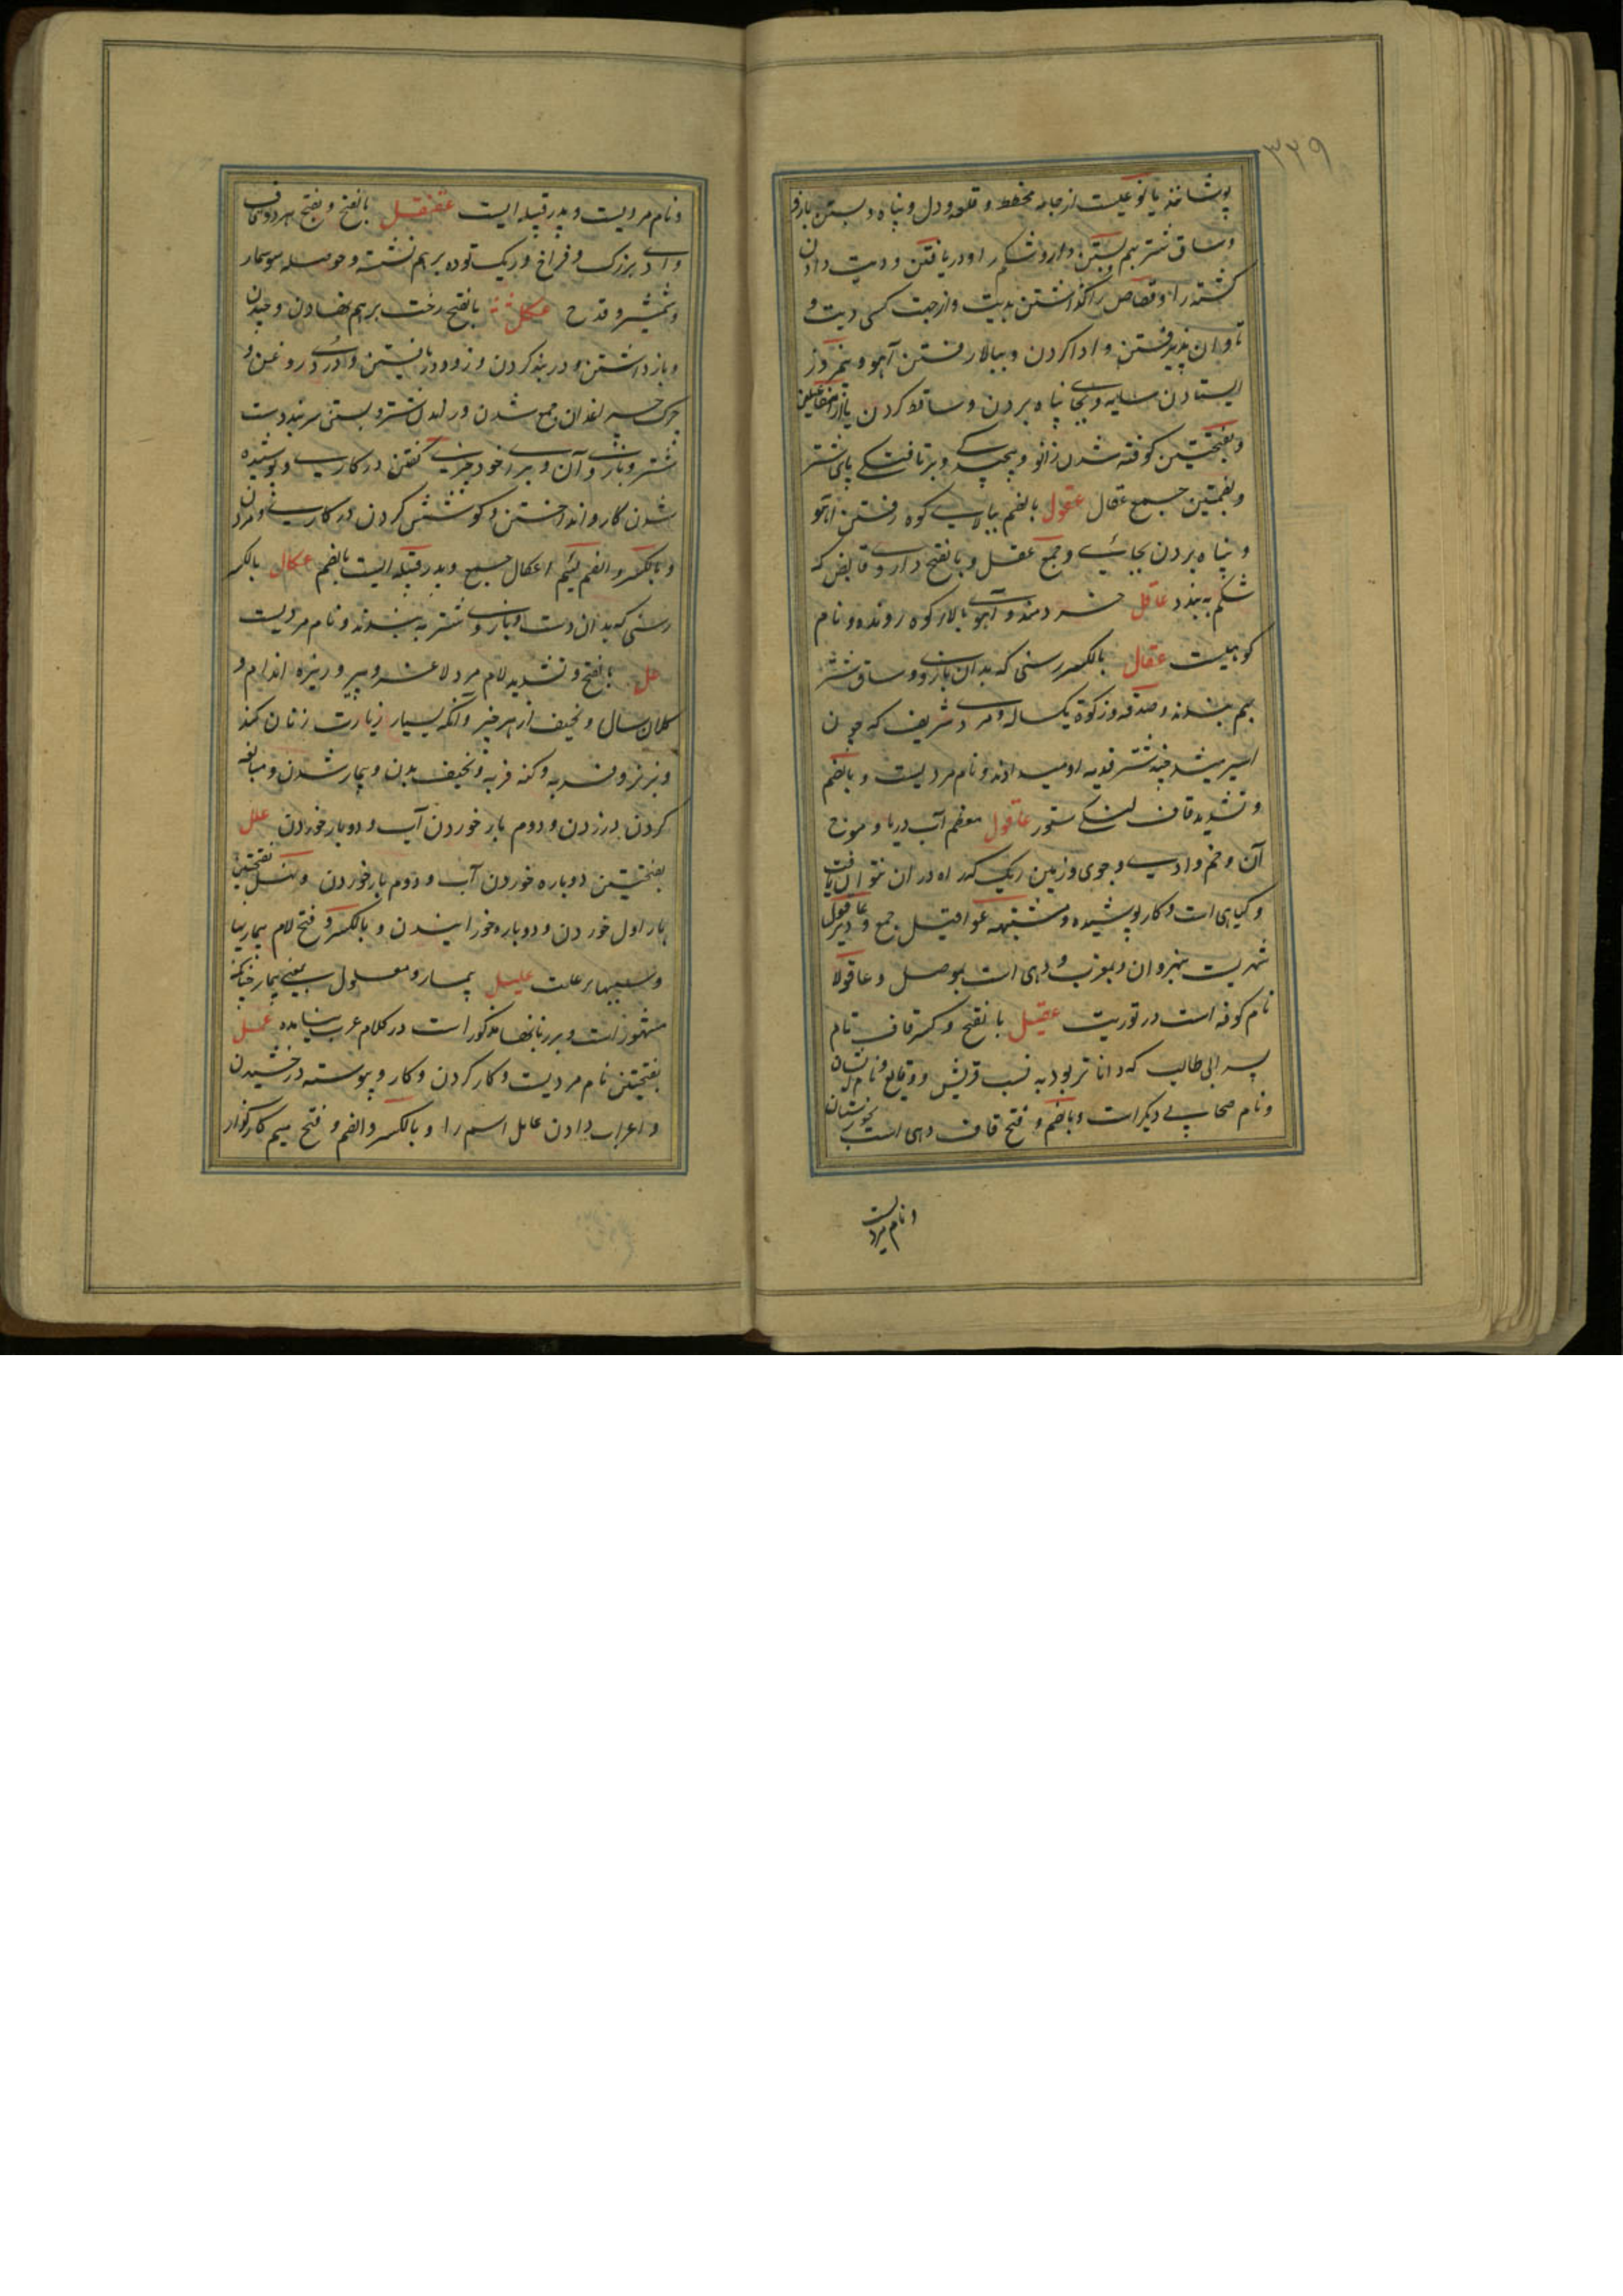 ۳۲۹
پوشانند یا نوعیست از جامه مخطط و قلعه و دل و پناه و بستن بازو
و ساق شتر بهم بستن و دارو شکم را و دریافتن و دیت دادن
کشته را و قصاص را گذاشتن بدیت و از جهت کسی دیت و
تاوان پذیرفتن و ادا کردن و ببالا رفتن آهو و نیمروز
ایستادن سایه و بجای پناه بردن و ساقط کردن یا از مفاعیلن
و بفتحتین کوفته شدن زانو و پیچیدگی و برتافتگی پای شتر
و بضمتین جمع عقال عقول بالضم ببالای کوه رفتن آهو
و پناه بردن بجائی و جمع عقل و بالفتح داروی قابض که
شکم به بندد عاقل خردمند و آهوی بالای کوه رونده و نام
کوهیست عقال بالکسر رسنی که بدان بازو و ساق شتر
بهم بندند و صدقه و زکوة یکساله و مردی شریف که چون
اسیر میشد چند شتر فدیه او میدادند و نام مردیست و بالضم
و تشدید قاف لنگی ستور عاقول معظم آب دریا و موج
آن و خم وادی و جوی و زمین ریگ که راه در آن نتوان یافت
و گیاهی است و کار پوشیده و مشتبهه عواقیل جمع و دیر عاقول
شهریست بنهروان و بمغرب و دهی است بموصل و عاقولا
نام کوفه است در توریت عقیل بالفتح و کسر قاف نام
پسر ابی طالب که داناتر بود به نسب قریش و وقایع و نام ایشان
و نام صحابی دیگر است و بالضم و فتح قاف دهی است بخوزستان
و نام مردیست
و نام مردیست و پدر قبیله ایست عقنقل بالفتح و بفتح هر دو قاف
وادی بزرگ و فراخ و ریگ توده برهم نشسته و حوصله سوسمار
و شمشیر و قدح عکل بالفتح رخت برهم نهادن و چیدن
و باز داشتن و در بند کردن و زود دریافتن و دردی روغن و
چرک چسپیدن و جمع شدن و راندن شتر و بستن سر بند دست
شتر و بازوی آن و برای خود چیزی گفتن در کاری و پوشیده
شدن کار و انداختن و کوشش کردن در کاری و مردن
و بالکسر و الضم لئیم اعکال جمع و پدر قبیله ایست بالضم عکال بالکسر
رسنی که بدان دست و بازوی شتر به بندند و نام مردیست
عل بالفتح و تشدید لام مرد لاغر و پیر و ریزه اندام و
کلان سال و نحیف از هر چیز و آنکه بسیار زیارت زنان کند
و بز نر و فربه و کنه فربه و نحیف بدن و بیمار شدن و مبالغه
کردن در زدن و دوم بار خوردن آب و دوبار خوردن علل
بفتحتین دوباره خوردن آب و دوم بار خوردن و نهل بفتحتین
بار اول خوردن و دوباره خورانیدن و بالکسر و فتح لام بیماریها
و سببها بر علت علیل بیمار و معلول بمعنی بیمار چنانکه
مشهور است و بر زبانها مذکور است در کلام عرب نیامده عمل
بفتحتین نام مردیست و کار کردن و کار و پیوسته درخشیدن
و اعراب دادن عامل اسم را و بالکسر و الضم و فتح میم کارگزار